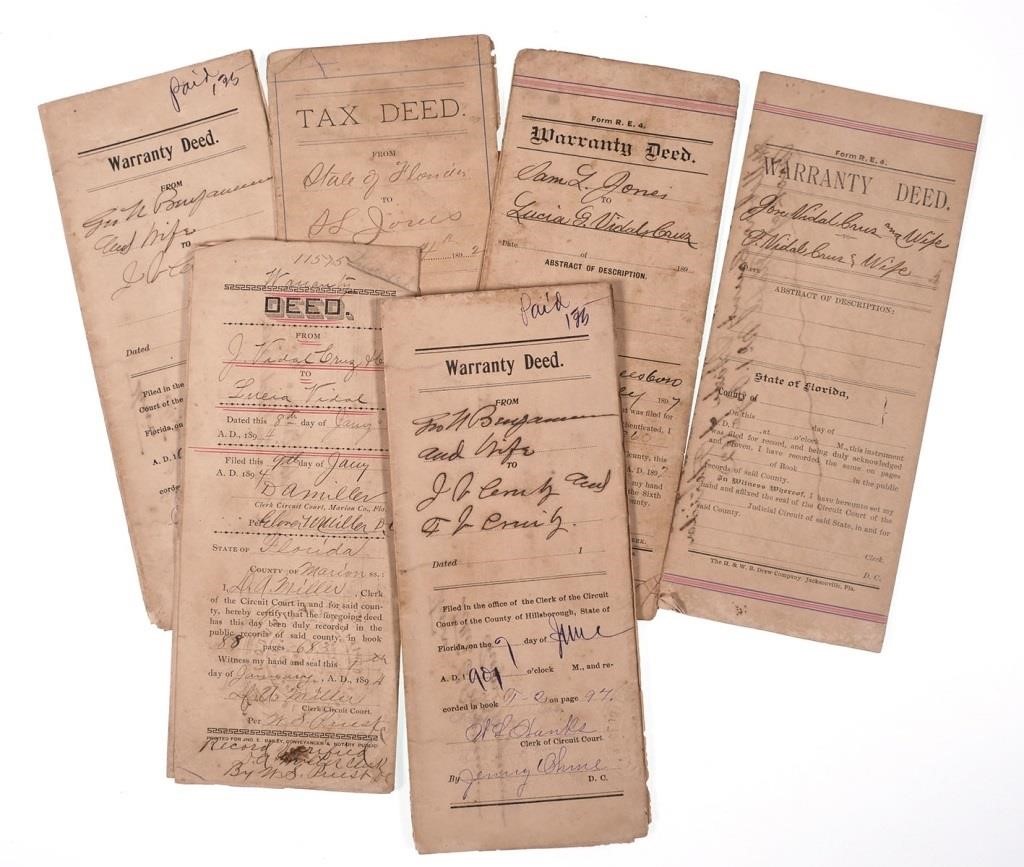 Paid
135
Warranty Deed.
FROM
Jno N Benjamin
and Wife
TO
J V C
Dated
Filed in the
Court of the
Florida, on
A. D. 1
corded
TAX DEED.
FROM
State of Florida
TO
S L Jones
189 2
Form R. E. 4.
Warranty Deed.
Sam L. Jones
TO
Lucia G. Vidal Cruz
Date of 189
ABSTRACT OF DESCRIPTION.
1897
was filed for
A. D. 189
my hand
the Sixth
County.
Form R. E. 4.
WARRANTY DEED.
Jose Vidal Cruz and Wife
T. Vidal Cruz & Wife
Date
ABSTRACT OF DESCRIPTION:
State of Florida,
County of
On this day of
A. D. at o'clock M., this instrument
was filed for record, and being duly acknowledged
and proven, I have recorded the same on pages
of Book in the public
records of said County.
In Witness Whereof, I have hereunto set my
hand and affixed the seal of the Circuit Court of the
Judicial Circuit of said State, in and for
said County.
Clerk.
D. C.
The H. & W. B. Drew Company, Jacksonville, Fla.
11575
Warranty
DEED.
FROM
J. Vidal Cruz &
TO
Lucia Vidal
Dated this 8th day of Jany
A. D., 1894
Filed this 9th day of Jany
A. D. 1894
D A Miller
Clerk Circuit Court, Marion Co., Fla.
Per Miller D
STATE OF Florida
COUNTY OF Marion ss.:
I, D. A. Miller, Clerk
of the Circuit Court in and for said coun-
ty, hereby certify that the foregoing deed
has this day been duly recorded in the
public records of said county, in book
88 pages 683
Witness my hand and seal this 9th
day of January, A. D., 1894
D. A. Miller
Clerk Circuit Court.
Per W. S. Priest
PRINTED FOR JNO. E. BAILEY, CONVEYANCER & NOTARY PUBLIC
Record verified
D. A. Miller Clerk
By W. S. Priest D
Paid
135
Warranty Deed.
FROM
Jno N Benjamin
and Wife
TO
J V Cruz and
T V Cruz.
Dated 1
Filed in the office of the Clerk of the Circuit
Court of the County of Hillsborough, State of
Florida, on the 7 day of June
A. D. 1901 o'clock M., and re-
corded in book T-2 on page 97.
Clerk of Circuit Court.
By Jenny D. C.